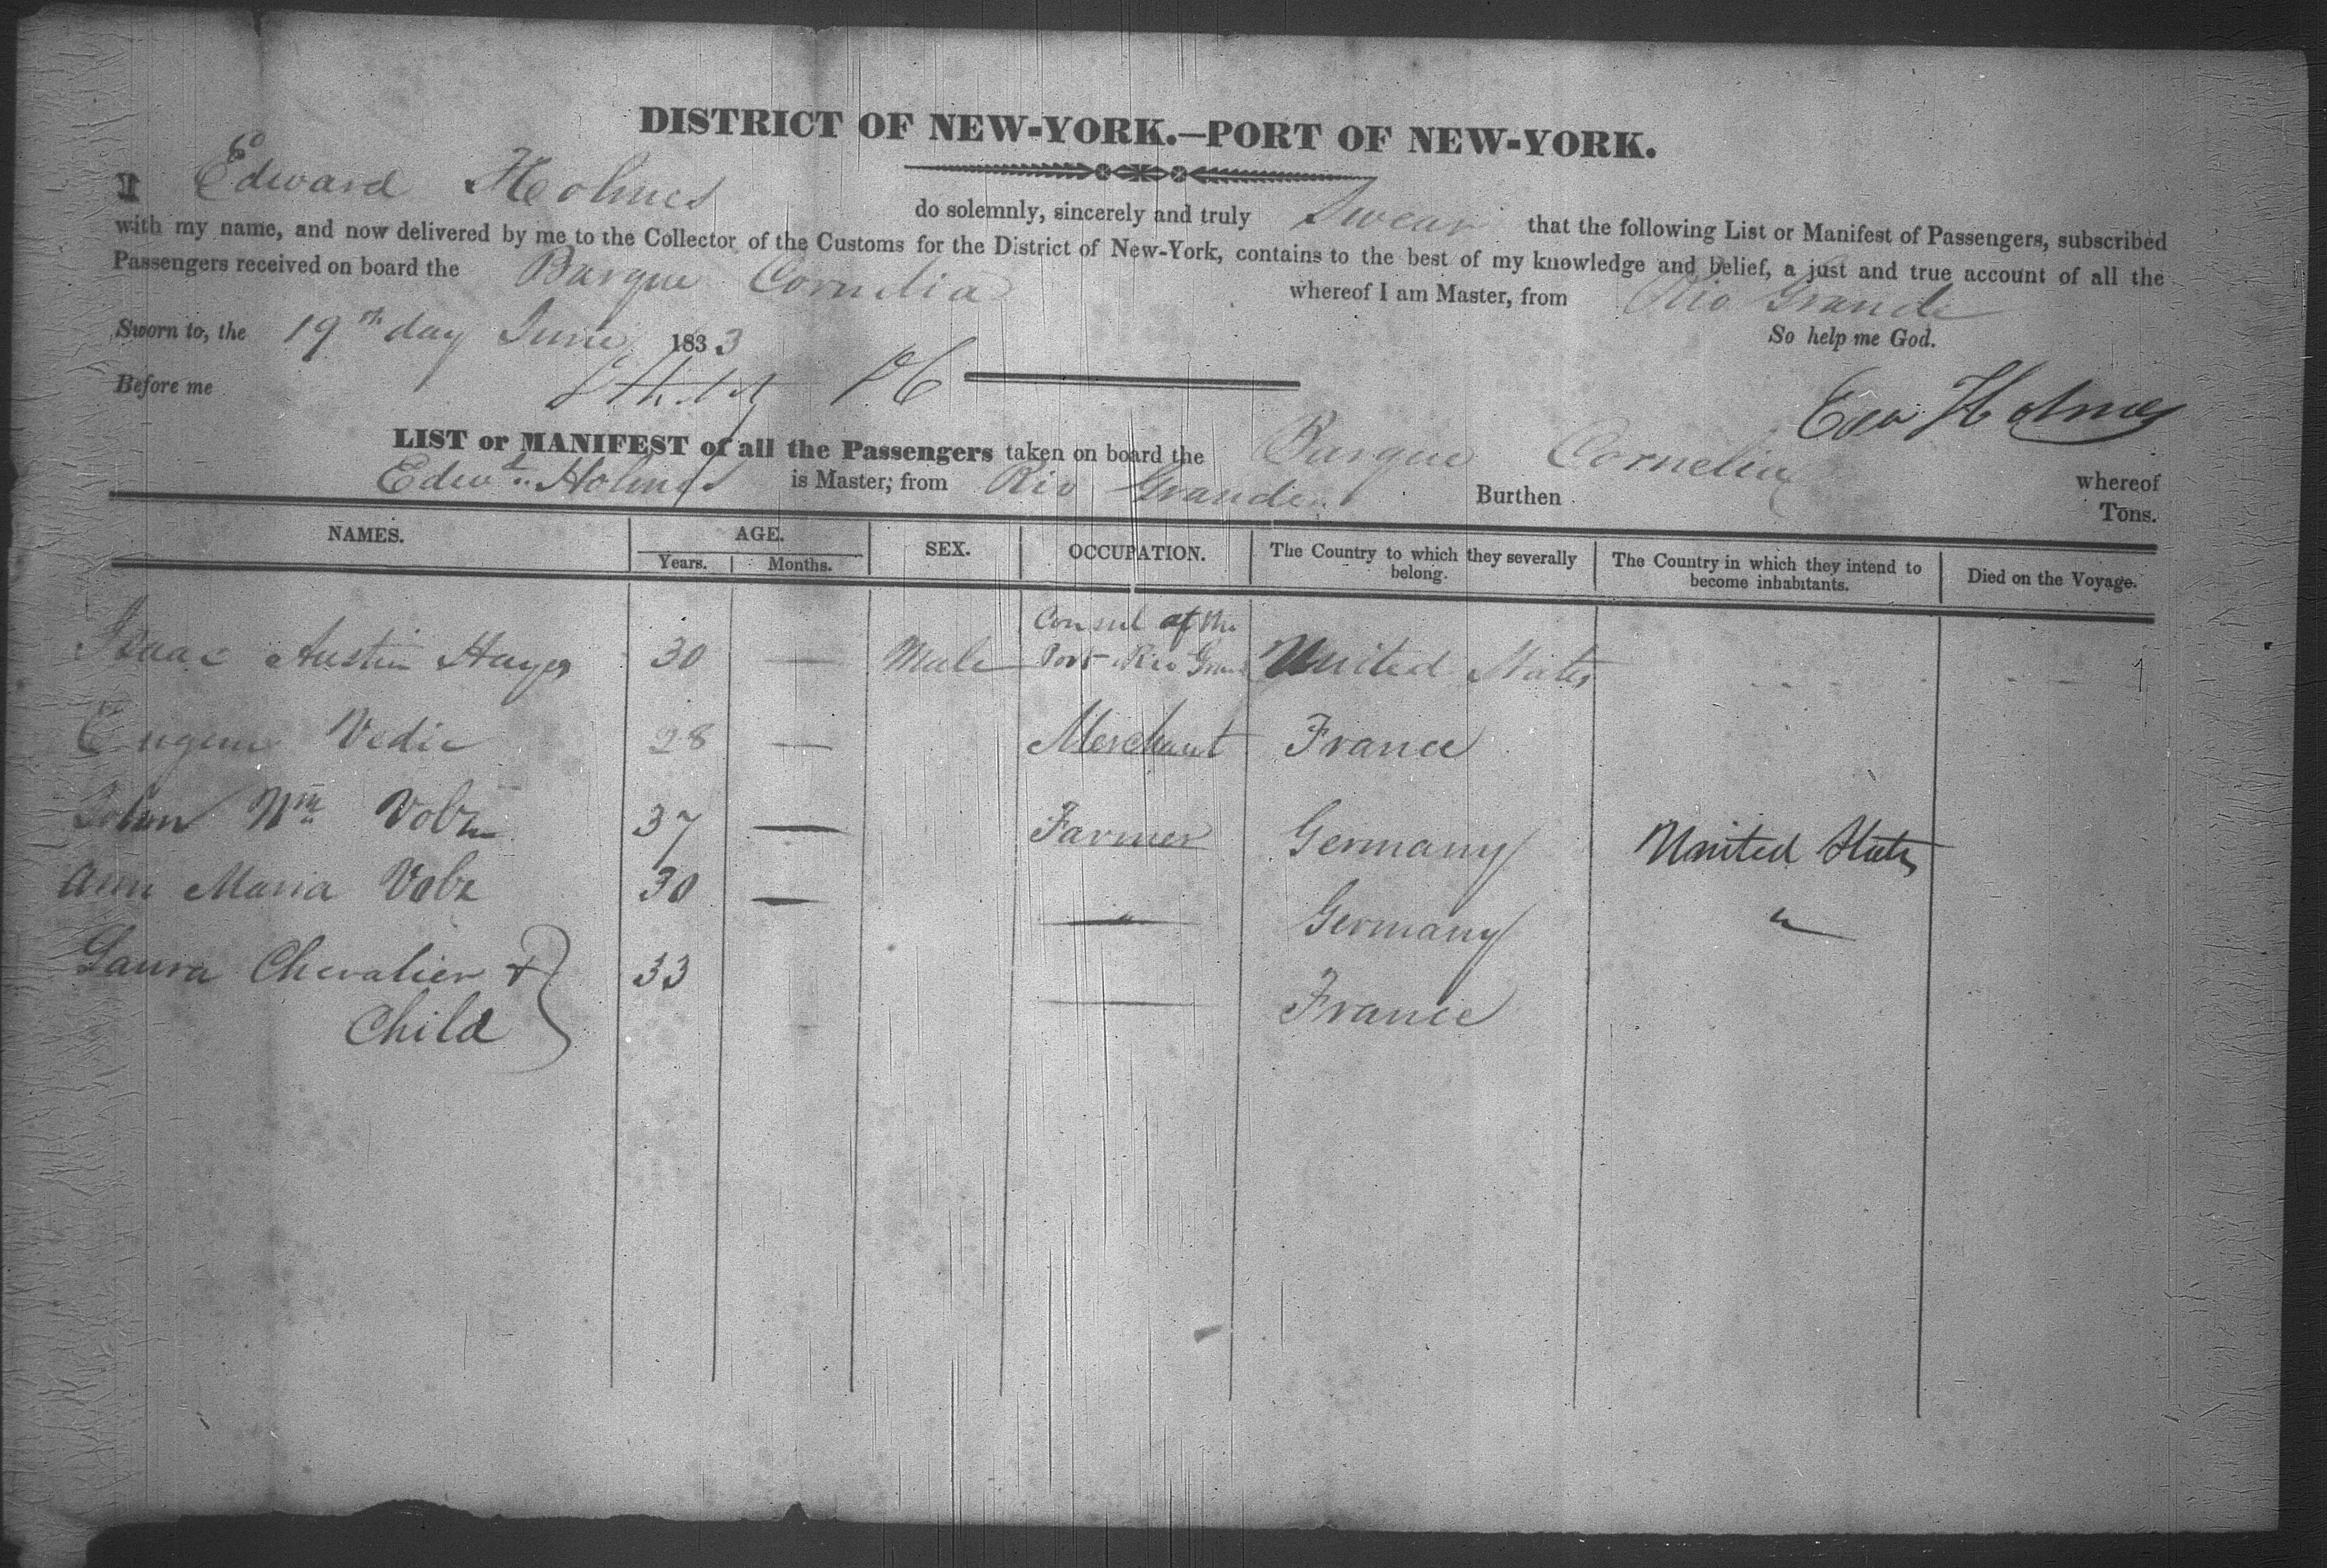 DISTRICT OF NEW-YORK.—PORT OF NEW-YORK.
I Edward Holmes do solemnly, sincerely and truly Swear that the following List or Manifest of Passengers, subscribed
with my name, and now delivered by me to the Collector of the Customs for the District of New-York, contains to the best of my knowledge and belief, a just and true account of all the
Passengers received on board the Barque Cornelia whereof I am Master, from Rio Grande
Sworn to, the 19th day June 1833 So help me God.
Before me
Edw Holmes
LIST or MANIFEST of all the Passengers taken on board the Barque Cornelia whereof
Edwd. Holmes is Master, from Rio Grande Burthen Tons.
NAMES. AGE. SEX. OCCUPATION. The Country to which they severally belong. The Country in which they intend to become inhabitants. Died on the Voyage.
Years. Months.
Isaac Austin Hayes 30 — Male Consul of the Port Rio Grande United States
Eugene Vedie 28 — Merchant France
John Wm Vobz 37 — Farmer Germany United States
Ann Maria Vobz 30 — — Germany "
Laura Chevalier + 33 — France
Child